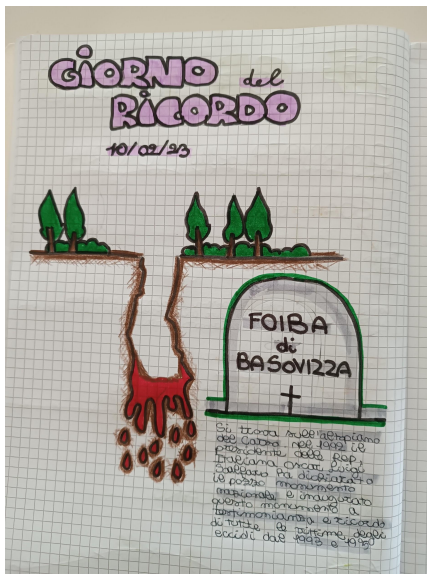 GIORNO del
RICORDO
10/02/23
FOIBA
di
BASOVIZZA
Si trova sull'altopiano
del Carso nel 1992 il
presidente della Rep.
Italiana Oscar Luigi
Scalfaro ha dichiarato
il pozzo monumento
nazionale e inaugurato
questo monumento a
testimonianza e ricordo
di tutte le vittime degli
eccidi dal 1943 e 1945